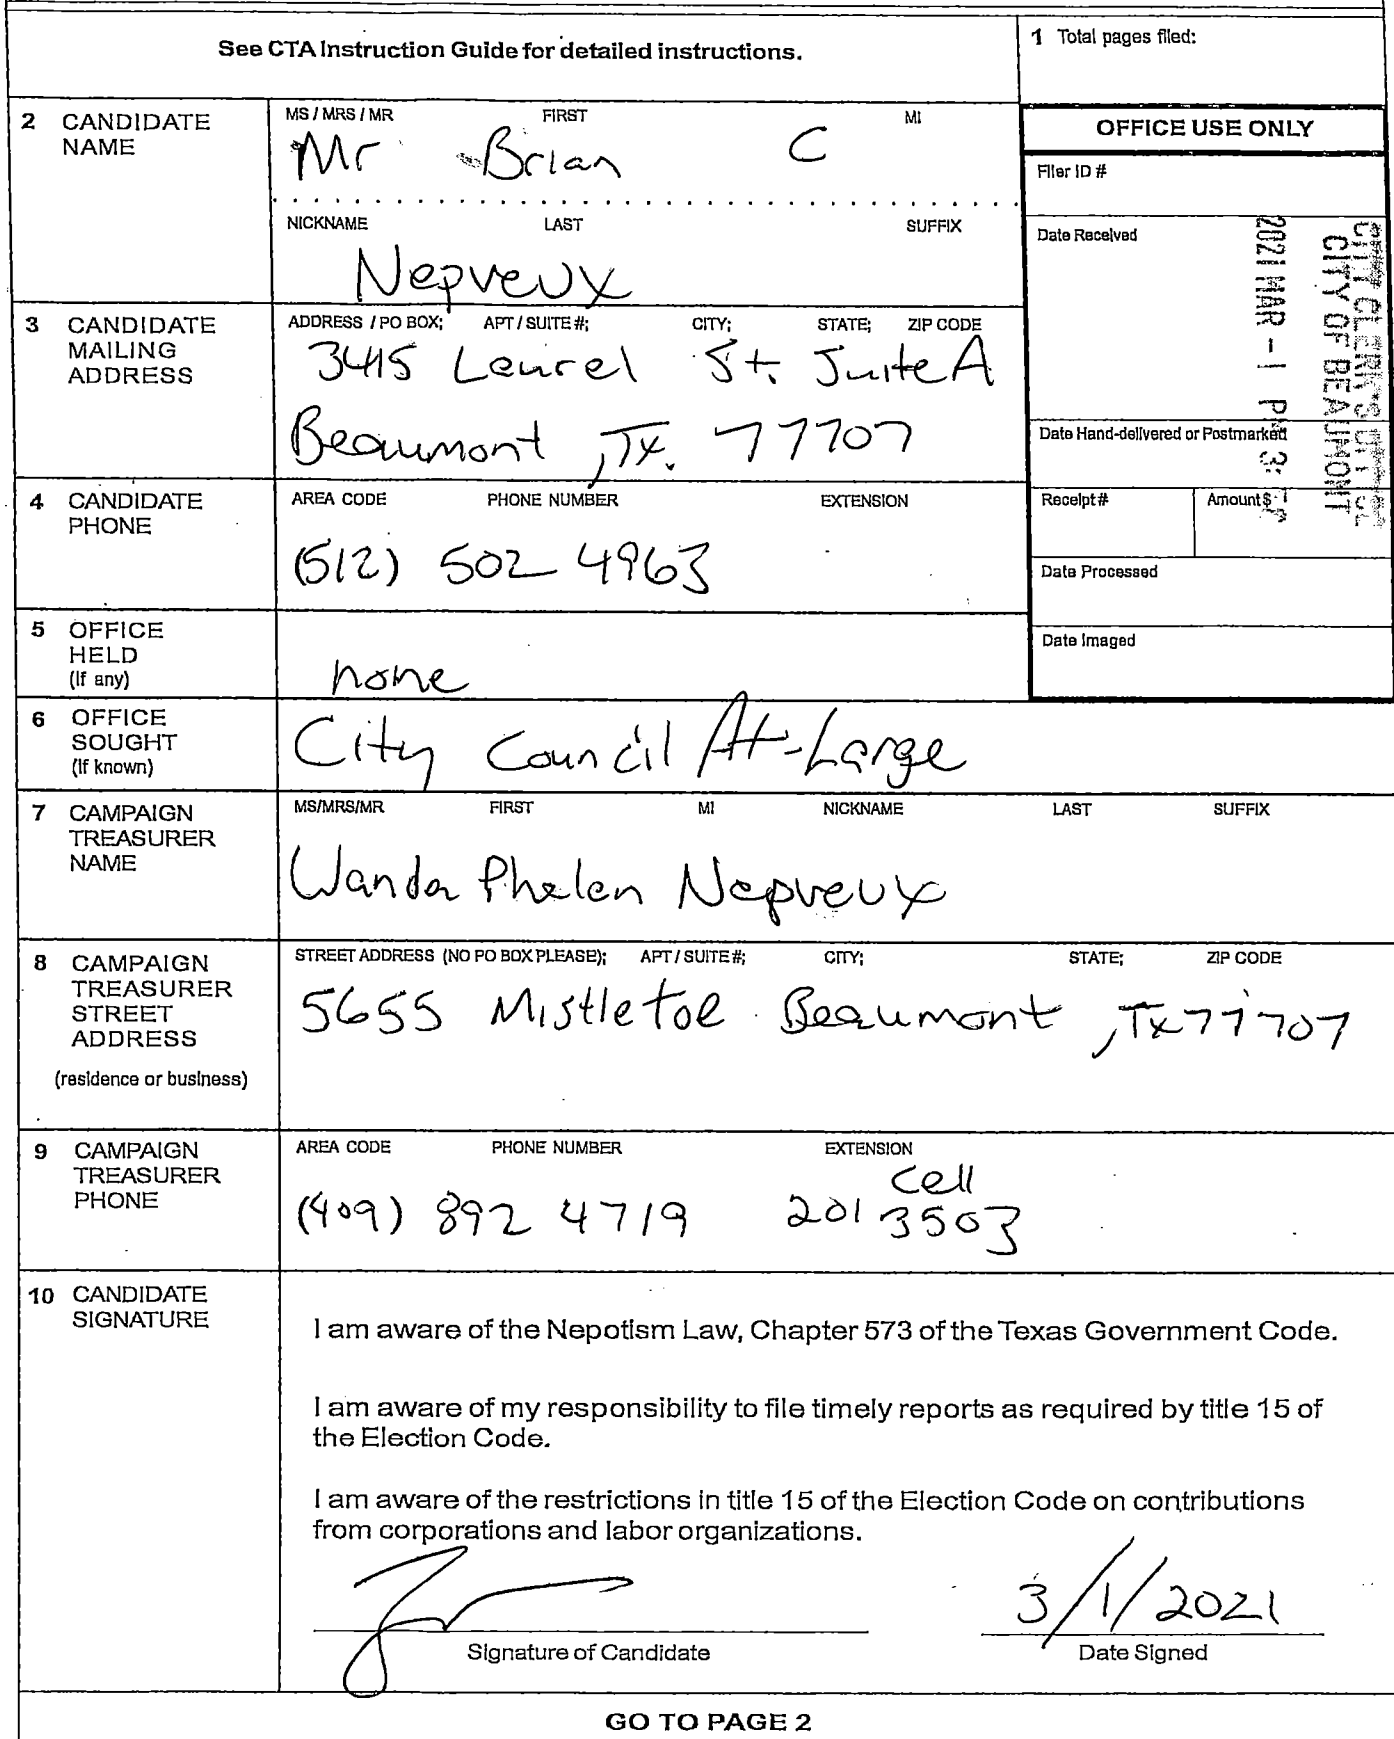 See CTA Instruction Guide for detailed instructions.
1 Total pages filed:
2 CANDIDATE NAME
MS / MRS / MR FIRST MI
Mr Brian C
NICKNAME LAST SUFFIX
Nepveux
OFFICE USE ONLY
Filer ID #
Date Received
CITY OF BEAUMONT
2021 MAR - 1 P 3:
Date Hand-delivered or Postmarked
Receipt # Amount $
Date Processed
Date Imaged
3 CANDIDATE MAILING ADDRESS
ADDRESS / PO BOX; APT / SUITE #; CITY; STATE; ZIP CODE
3415 Laurel St. Suite A
Beaumont, Tx. 77707
4 CANDIDATE PHONE
AREA CODE PHONE NUMBER EXTENSION
(512) 502 4963
5 OFFICE HELD (If any)
none
6 OFFICE SOUGHT (If known)
City Council At-Large
7 CAMPAIGN TREASURER NAME
MS/MRS/MR FIRST MI NICKNAME LAST SUFFIX
Wanda Phelan Nepveux
8 CAMPAIGN TREASURER STREET ADDRESS
(residence or business)
STREET ADDRESS (NO PO BOX PLEASE); APT / SUITE #; CITY; STATE; ZIP CODE
5655 Mistletoe Beaumont, Tx 77707
9 CAMPAIGN TREASURER PHONE
AREA CODE PHONE NUMBER EXTENSION
cell
(409) 892 4719 201 3503
10 CANDIDATE SIGNATURE
I am aware of the Nepotism Law, Chapter 573 of the Texas Government Code.
I am aware of my responsibility to file timely reports as required by title 15 of
the Election Code.
I am aware of the restrictions in title 15 of the Election Code on contributions
from corporations and labor organizations.
3/1/2021
Signature of Candidate Date Signed
GO TO PAGE 2